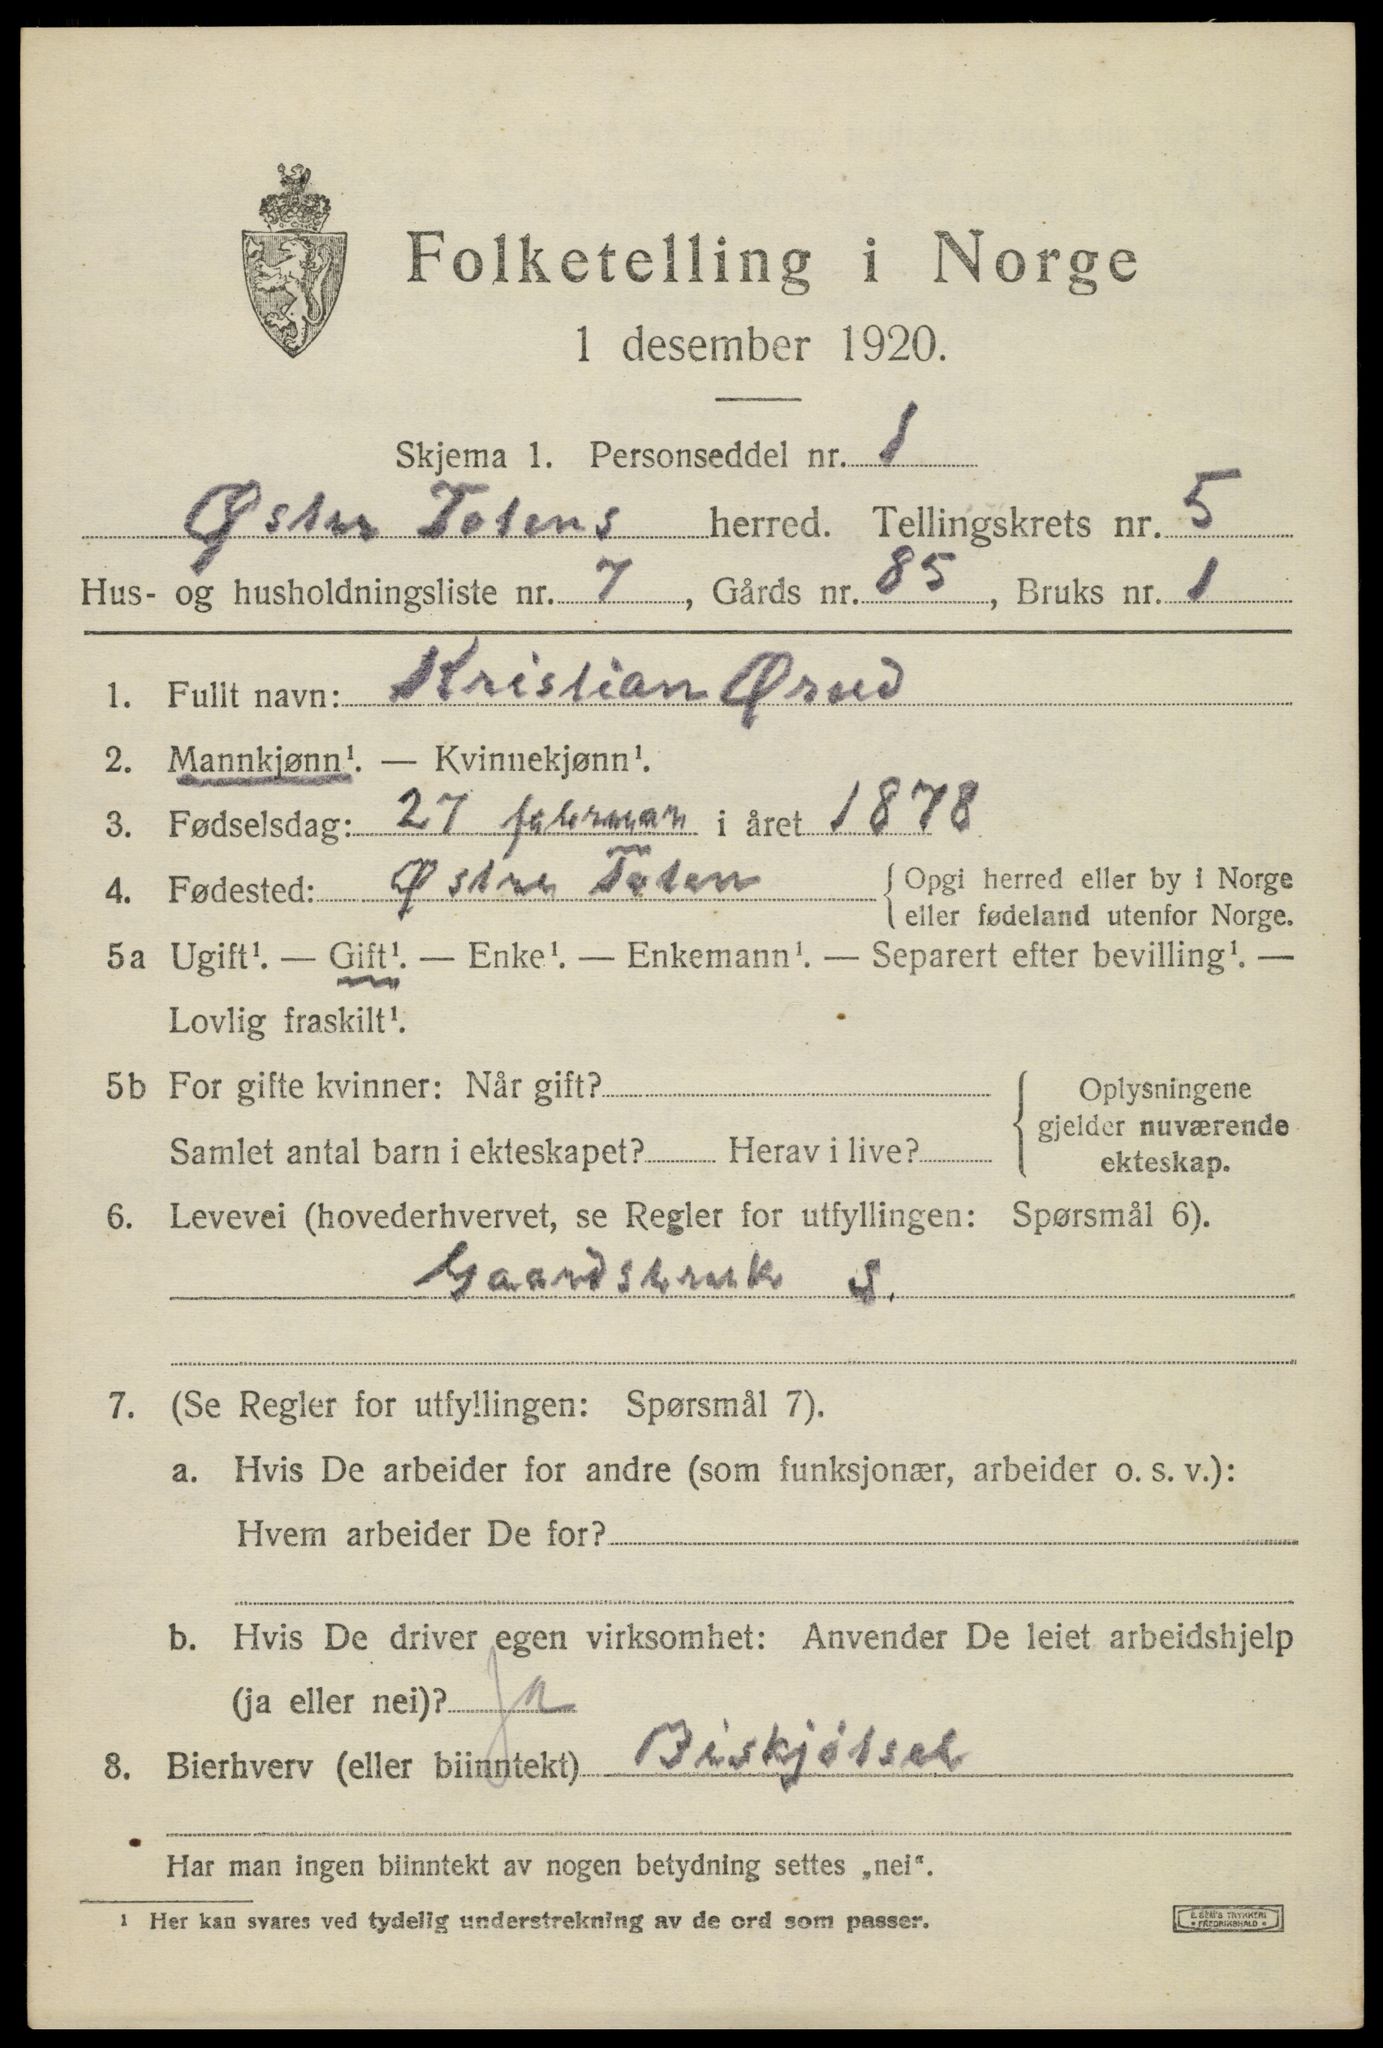 Folketelling i Norge
1 desember 1920.
Skjema 1. Personseddel nr. 1
Østre Totens herred. Tellingskrets nr. 5
Hus- og husholdningsliste nr. 7, Gårds nr. 85, Bruks nr. 1
1. Fullt navn: Kristian Ørud
2. Mannkjønn¹. — Kvinnekjønn¹.
3. Fødselsdag: 27 februar i året 1878
4. Fødested: Østre Toten { Opgi herred eller by i Norge
eller fødeland utenfor Norge.
5a Ugift¹. — Gift¹. — Enke¹. — Enkemann¹. — Separert efter bevilling¹. —
Lovlig fraskilt¹.
5b For gifte kvinner: Når gift?
Samlet antal barn i ekteskapet? Herav i live?
Oplysningene
gjelder nuværende
ekteskap.
6. Levevei (hovederhvervet, se Regler for utfyllingen: Spørsmål 6).
Gaardsbruk S.
7. (Se Regler for utfyllingen: Spørsmål 7).
a. Hvis De arbeider for andre (som funksjonær, arbeider o. s. v.):
Hvem arbeider De for?
b. Hvis De driver egen virksomhet: Anvender De leiet arbeidshjelp
(ja eller nei)? Ja
8. Bierhverv (eller biinntekt)
Har man ingen biinntekt av nogen betydning settes „nei“.
¹ Her kan svares ved tydelig understrekning av de ord som passer.
E. SEM'S TRYKKERI
• FREDRIKSHALD •